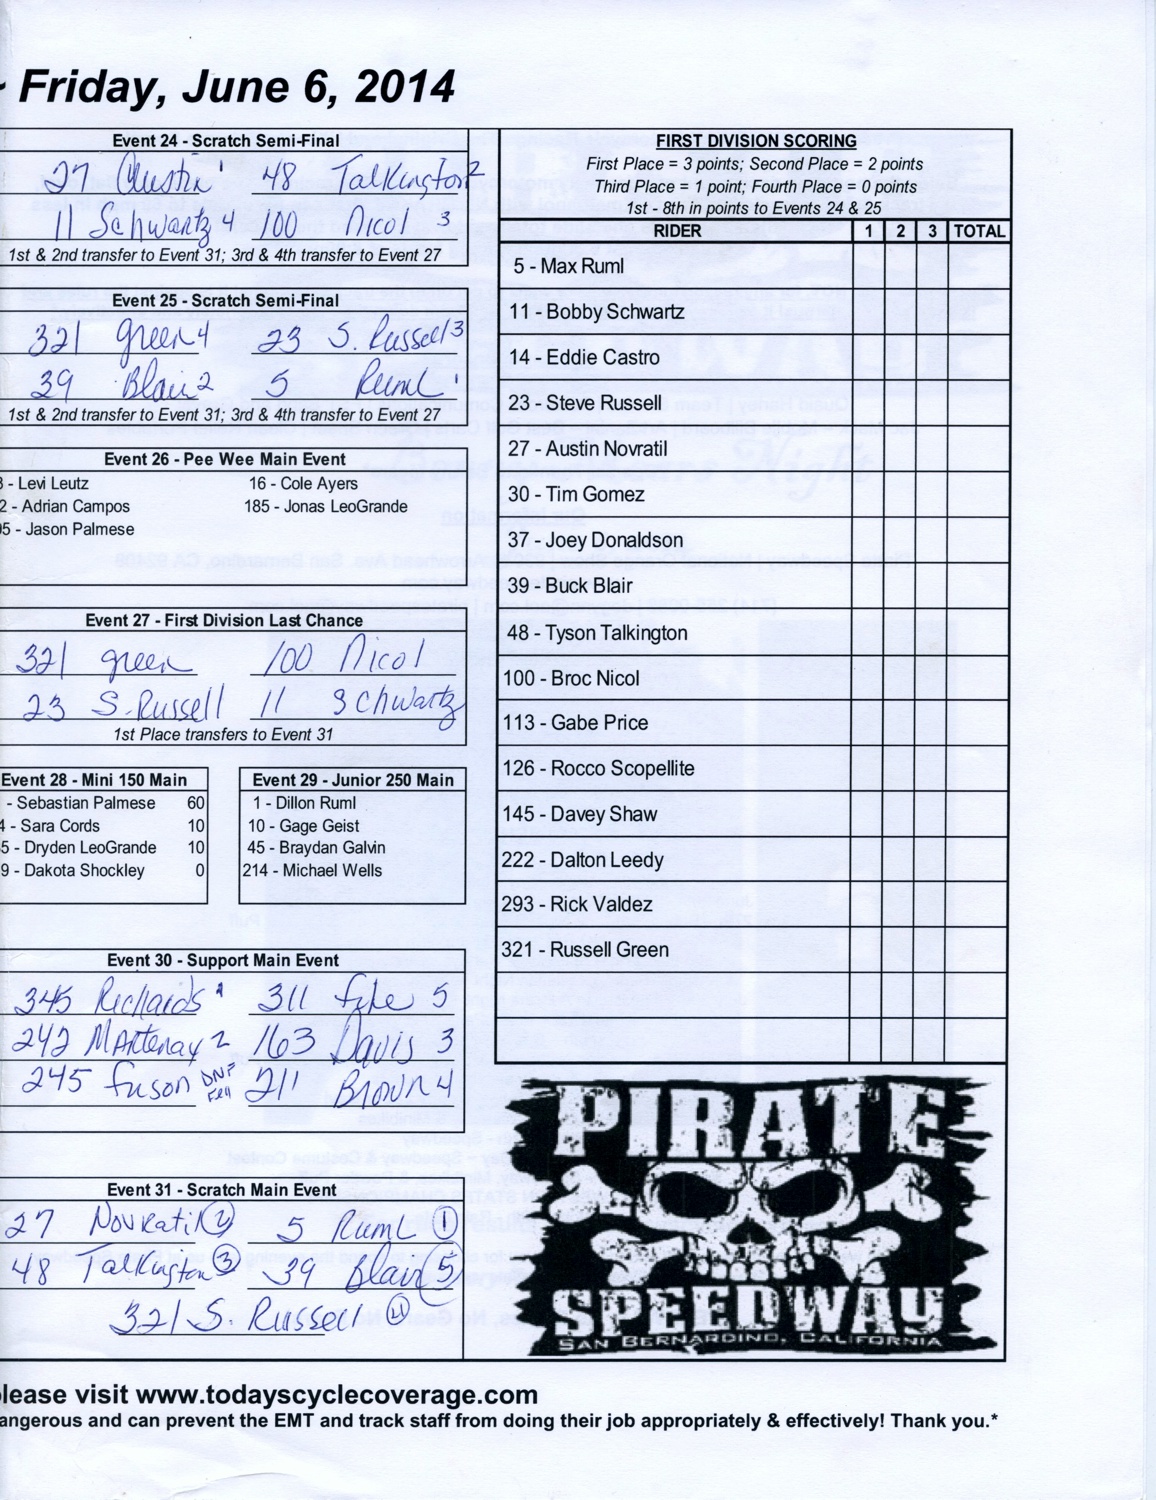 Friday, June 6, 2014
Event 24 - Scratch Semi-Final
27 Austin 1 48 Talkington 2
11 Schwartz 4 100 Nicol 3
1st & 2nd transfer to Event 31; 3rd & 4th transfer to Event 27
Event 25 - Scratch Semi-Final
321 green 4 23 S. Russell 3
39 Blair 2 5 Ruml 1
1st & 2nd transfer to Event 31; 3rd & 4th transfer to Event 27
Event 26 - Pee Wee Main Event
- Levi Leutz 16 - Cole Ayers
2 - Adrian Campos 185 - Jonas LeoGrande
5 - Jason Palmese
Event 27 - First Division Last Chance
321 green 100 Nicol
23 S. Russell 11 Schwartz
1st Place transfers to Event 31
Event 28 - Mini 150 Main
- Sebastian Palmese 60
4 - Sara Cords 10
5 - Dryden LeoGrande 10
9 - Dakota Shockley 0
Event 29 - Junior 250 Main
1 - Dillon Ruml
10 - Gage Geist
45 - Braydan Galvin
214 - Michael Wells
Event 30 - Support Main Event
345 Richards 1 311 fife 5
242 Martenay 2 163 Davis 3
245 fuson DNF Fell 211 Brown 4
Event 31 - Scratch Main Event
27 Novratil 2 5 Ruml 1
48 Talkington 3 39 Blair 5
321 S. Russell 4
FIRST DIVISION SCORING
First Place = 3 points; Second Place = 2 points
Third Place = 1 point; Fourth Place = 0 points
1st - 8th in points to Events 24 & 25
RIDER 1 2 3 TOTAL
5 - Max Ruml
11 - Bobby Schwartz
14 - Eddie Castro
23 - Steve Russell
27 - Austin Novratil
30 - Tim Gomez
37 - Joey Donaldson
39 - Buck Blair
48 - Tyson Talkington
100 - Broc Nicol
113 - Gabe Price
126 - Rocco Scopellite
145 - Davey Shaw
222 - Dalton Leedy
293 - Rick Valdez
321 - Russell Green
PIRATE
SPEEDWAY
SAN BERNARDINO, CALIFORNIA
please visit www.todayscyclecoverage.com
angerous and can prevent the EMT and track staff from doing their job appropriately & effectively! Thank you.*